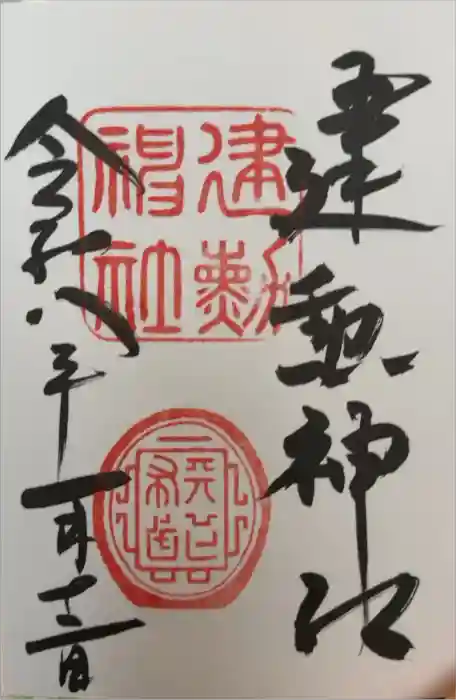 建勲神社
令和八年一月十二日
建勲
神社